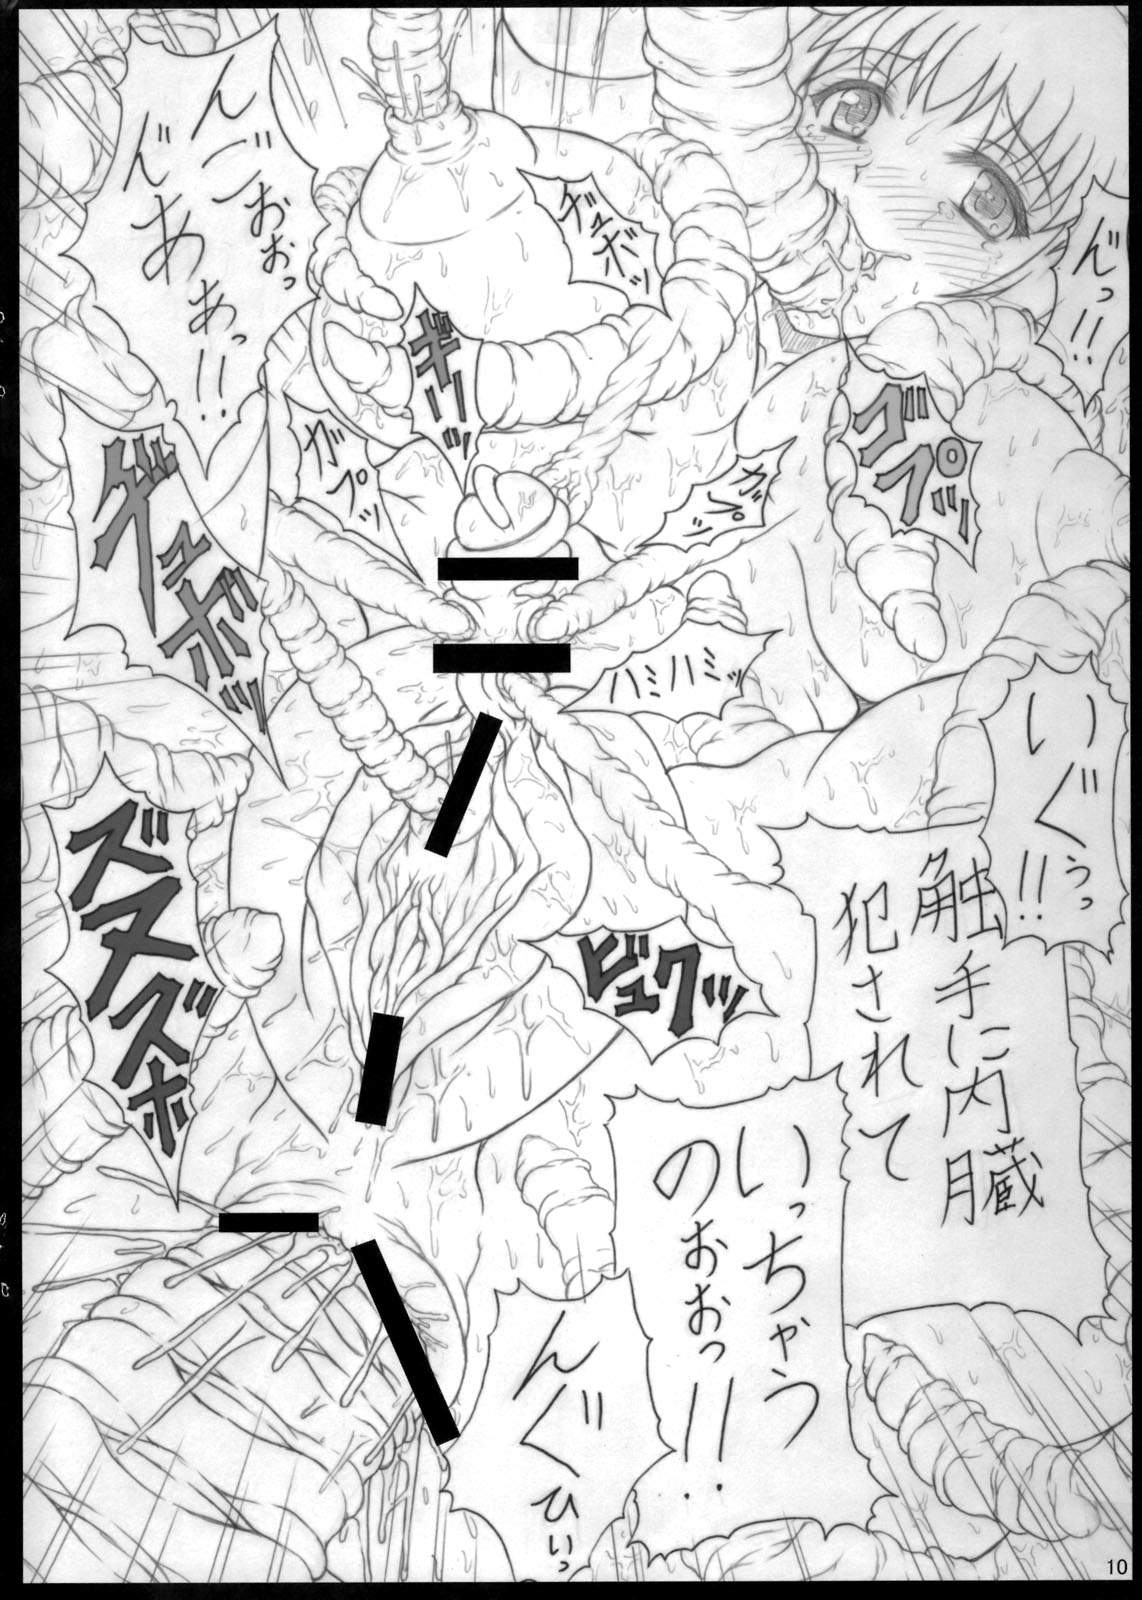 んっ!!
グプッ
ヂュボッ
ギリッ
んごおおっ
んああっ!!
ガプッ
ガプッ
ヂュボボッ
ハミハミッ
いぐぅっ!!
触手に内臓
犯されて
いっちゃう
のおおっ!!
ビュクッ
ズヌズボ
んぐ
ひいっ
10